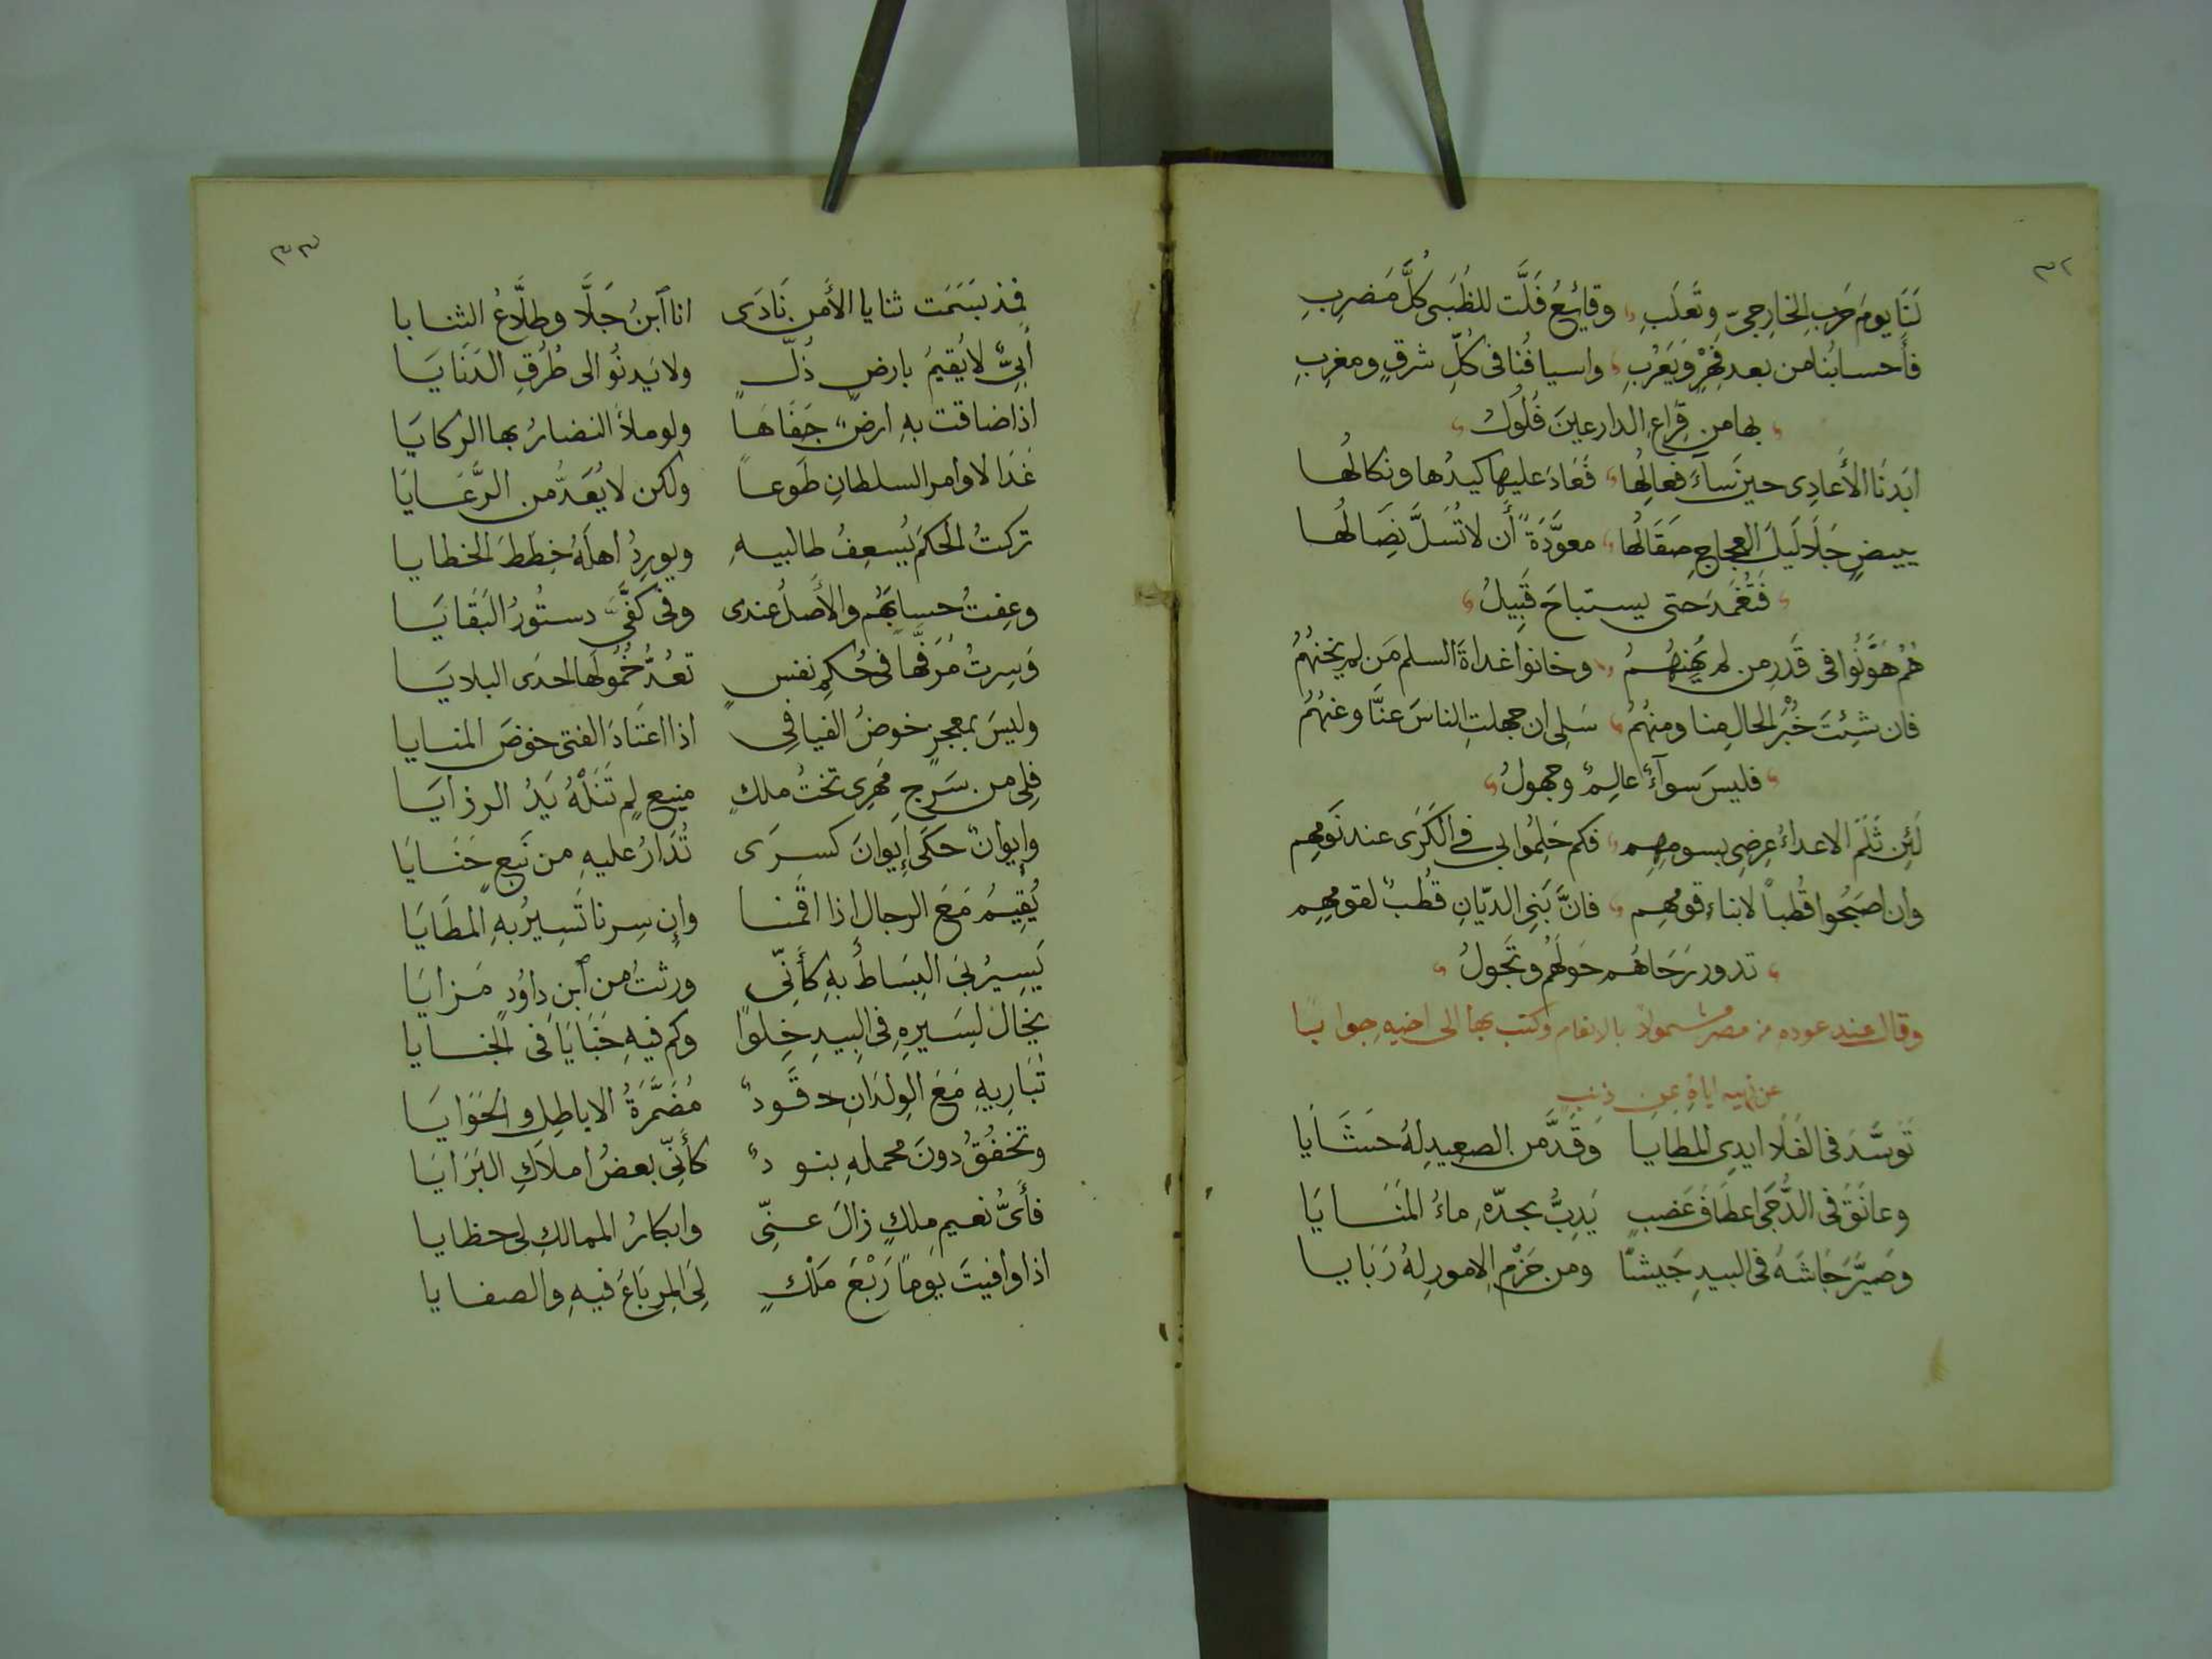 ٣٢
لَنَا يومَ حَربِ الخارِجىّ وتَغلَبِ وقايِعُ فَلَّت للظُبَى كُلَّ مَضرِبِ
فأَحسابُنا من بعد فِهْرٍ وَيَعْرُبِ واسيافُنا فى كُلّ شرقٍ ومغرِبِ
بها من قِراعِ الدارعينَ فُلُولُ
ابَدنَا الأَعادِى حين سَآءَ فعالُها فَعَادَ عليها كيدُها ونكالُها
ببيضٍ جَلَا لَيلَ العجاجِ صَقَالُها معوَّدَةً أَن لا تُسَلَّ نِصَالُها
فَتُغْمَدَ حتى يستباحَ قَبِيلُ
هُمُ هَوَّنُوا فى قَدَرِ من لم يُهِنهُمُ وخانوا غداةَ السلم مَن لم يَخُنهُمُ
فان شِئتَ خُبْرَ الحالِ منا ومنهُمُ سَلِى ان جهلتِ الناسَ عنَّا وعَنهُمُ
فليسَ سوآءً عالِمٌ وجهولُ
لَئِن ثَلَمَ الاعداءُ عِرضِى بسومِهِم فكم حَلِمُوا بى فى الكَرَى عند نَومِهِم
وان اصبَحُوا قُطباً لابناءِ قومِهِم فانَّ بَنِى الديّانِ قُطبٌ لقومِهِم
تدور رَحَاهُم حَولَهُم وتَجُولُ
وقال عند عوده من مصر مشمولاً بالانعام وكتب بها الى اخيه جوابًا
عن نهيه اياهُ عن ذنبٍ
تَوسَّدَ فى الفَلا ايدِى المطايا وَقَدَّ من الصعِيدِ لهُ حَشَايَا
وعانَقَ فى الدُّجَى اعطافَ عَضبٍ يَدِبُّ بحدّهِ ماءُ المَنَايَا
وصَيَّرَ جَاشَهُ فى البيدِ جَيشًا ومن حَزْمِ الامورِ لهُ رَبَايا
٣٣
فمذ بسَمَت ثنايا الأَمن نَادَى انا ٱبنُ جَلَّا وطلَّاعُ الثنايا
أَبِىٌّ لا يُقيمُ بارضِ ذُلّ ولا يَدنُو الى طُرُقِ الدَنَايَا
اذا ضاقت بهِ ارضٌ جَفَاهَا ولو ملأَ النضارُ بها الركايَا
غَدَا لاوامر السلطانِ طَوعاً ولكن لا يُعَدُّ من الرَّعَايَا
تركتُ الحكمَ يُسعِفُ طالبيهِ ويورِدُ اهلَهُ خِطَطَ الخطايا
وعِفتُ حسابَهُم والأَصلُ عندى وفى كفَّىَّ دستُورُ البَقَايَا
وَسِرتُ مُرَفَّهاً فى حُكمِ نفسٍ تعُدُّ خُمُولَها احدَى البلايَا
وليسَ بمعجزٍ خوضُ الفيافِى اذا اعتَادَ الفتى خوضَ المنايا
فِلِى من سَرجِ مُهرِى تختُ ملكٍ منيعٍ لم تَنَلْهُ يَدُ الرزايَا
وإِيوانٌ حَكَى إِيوانَ كسرَى تُدَارُ عليهِ من نَبعٍ حَنَايَا
يُقِيمُ مَعَ الرجال اذا اقمنا وإِن سِرنا تَسِيرُ بهِ المطَايَا
يَسِيرُ بىَ البِسَاطُ بهِ كأَنّى ورثتُ من ٱبنِ داوُدٍ مَزايَا
يُخَالُ لسَيرِهِ فى البيدِ خِلوًا وكم فيهِ خَبَايَا فى الخبايا
تُبَارِيهِ مَعَ الوِلدَانِ قُودٌ مُضَمَّرَةُ الاياطِلِ والحَوَايَا
وتَخفُقُ دونَ محملهِ بنودٌ كأَنّى بعضُ املَاكِ البَرَايَا
فأَىُّ نعيمِ ملكٍ زالَ عنّى وابكارُ الممالكِ لى حظايا
اذا وافيتَ يوماً رَبْعَ مَلْكٍ لِىَ المِرباعَ فيهِ والصفايا